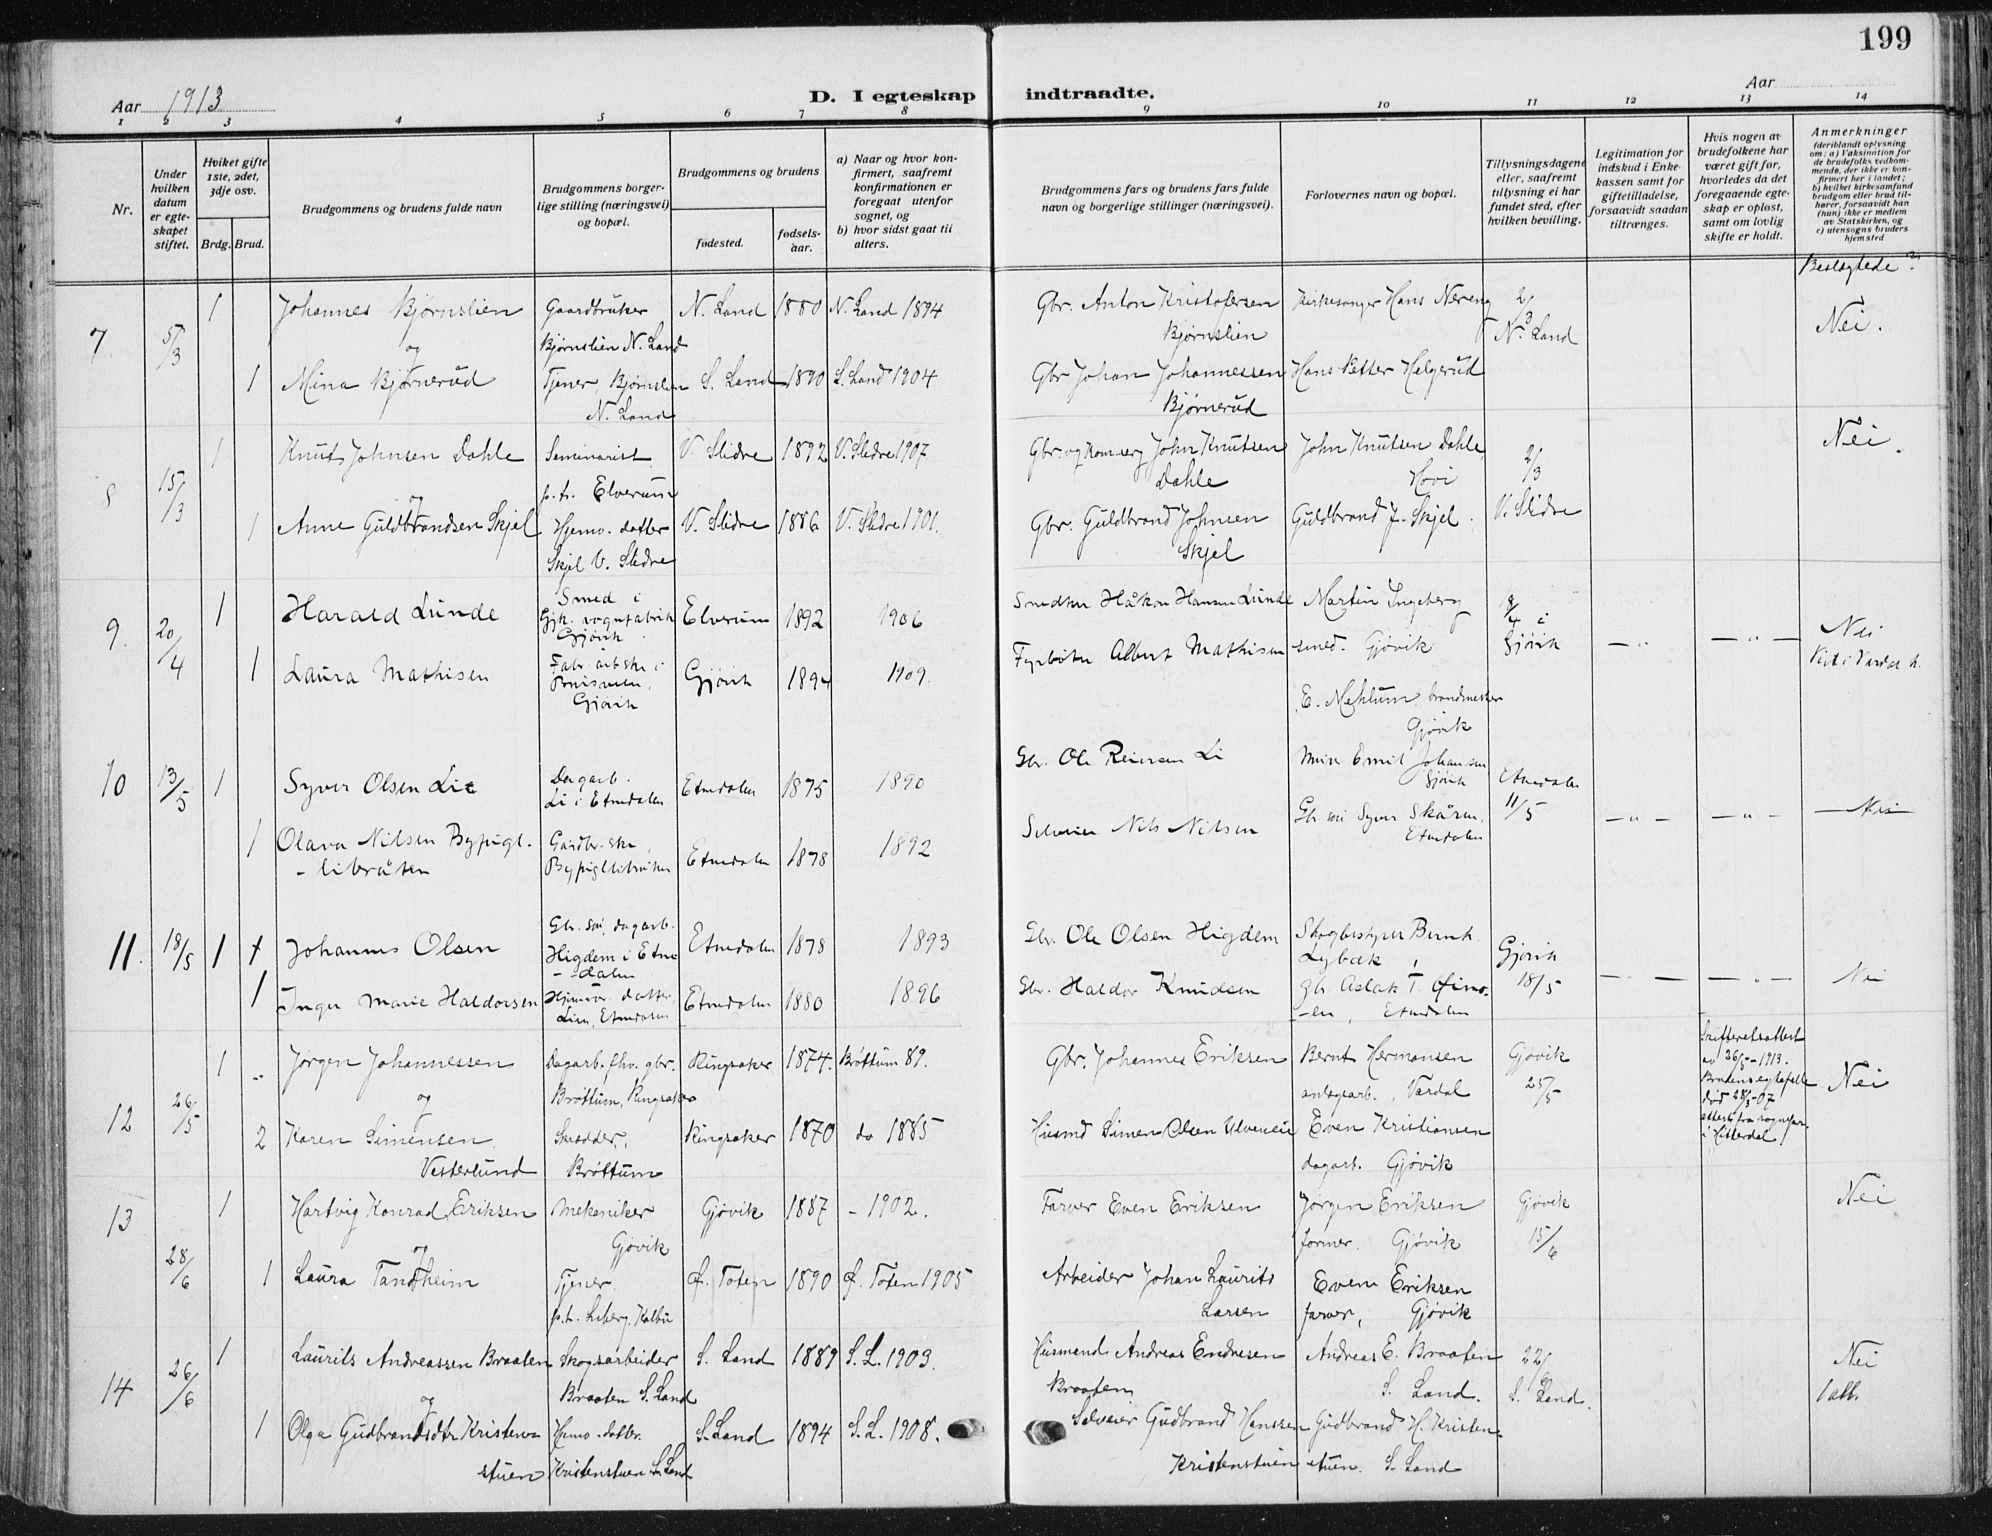 199
Aar 1913
D. I egteskap indtraadte.
Aar
1 2 3 4 5 6 7 8 9 10 11 12 13 14
Nr.
Under hvilken datum er egteskapet stiftet.
Hvilket gifte 1ste, 2det, 3dje osv.
Brdg. Brud.
Brudgommens og brudens fulde navn
Brudgommens borgerlige stilling (næringsvei) og bopæl.
Brudgommens og brudens
fødested.
fødselsaar.
a) Naar og hvor konfirmert, saafremt konfirmationen er foregaat utenfor sognet, og
b) hvor sidst gaat til alters.
Brudgommens fars og brudens fars fulde navn og borgerlige stillinger (næringsvei).
Forlovernes navn og bopæl.
Tillysningsdagene eller, saafremt tillysning ei har fundet sted, efter hvilken bevilling.
Legitimation for indskud i Enkekassen samt for giftetilladelse, forsaavidt saadan tiltrænges.
Hvis nogen av brudefolkene har været gift før, hvorledes da det foregaaende egteskap er opløst, samt om lovlig skifte er holdt.
Anmerkninger (deriblandt oplysning om: a) Vaksination for de brudefolks vedkommende, der ikke er konfirmert her i landet; b) hvilket kirkesamfund brudgom eller brud tilhører, forsaavidt han (hun) ikke er medlem av Statskirken, og c) utensogns bruders hjemsted
Beslegtede?
7 5/3 1 Johannes Bjørnslien Gaardbruker N. Land 1880 N. Land 1894 Gbr. Anton Kristofersen Kirkesanger Hans Nereng 2/3 Nei.
og Bjørnslien N. Land Bjørnslien N. Land
1 Mina Bjørnerud Tjener Bjørnslien S. Land 1890 S. Land 1904 Gbr Johan Johannessen Hans Petter Helgerud
N. Land Bjørnerud
8 15/3 1 Knut Johnsen Dahle Seminarist V. Slidre 1892 V. Slidre 1907 Gbr. og John Knutsen John Knutsen Dahle 2/3 Nei.
og p.t. Elverum Dahle Hovi
1 Anne Guldbrandsen Skjel Hjemv. datter V. Slidre 1886 V. Slidre 1901. Gbr. Guldbrand Johnsen Guldbrand J. Skjel. V. Slidre
Skjel V. Slidre Skjel
9. 20/4 1 Harald Lunde Smed i Gjk. vognfabrik Gjøvik Elverum 1892 1906 Håkon Hansen Lunde Martin Ingeberg 18/4 i Nei
1 Laura Mathisen Gjøvik Gjøvik 1894 1909. Fyrbøter Albert Mathisen smed. Gjøvik Gjøvik — " — — " —
E. Mæhlum brandmester
Gjøvik
10 13/5 1 Syver Olsen Lie Dagarb. Etnedalen 1875 1890 Gbr. Ole Reiersen Li Murer Emil Johansen Gjøvik Etnedalen
Li i Etnedalen 11/5 — " — — " — Nei
1 Olava Nilsen Bypigl- Gårdbr.ske, Etnedalen 1878 1892 Selveier Nils Nilsen Syver Skåren,
-libråten Etnedalen
11. 18/5 1 Johannes Olsen Gbr. søn, dagarb. Etnedalen 1878 1893 Gbr. Ole Olsen Higdem Skogbestyrer Bernh. Gjøvik
Higdem i Etnedalen Lybæk,
1 Inger Marie Haldorsen Hjemvær. datter, Etnedalen 1880 1896 Gbr. Haldor Knudsen gbr Aslak T. 18/5 — " — — " — Nei
Lien, Etnedalen Etnedalen
12 26/5 1 Jørgen Johannessen Dagarb. fhv. gbr. Ringsaker 1874. Brøttum 89. Gbr. Johannes Eriksen Bernt Hermansen Gjøvik Skifteretsattest av 26/5-1913. Nei
og Brøttum, Ringsaker Vardal 25/5 Brudens egtefælle død 28/3-07
2 Karen Simensen Skrædder, Ringsaker 1870 do 1885 Husmd Simen Olsen Ulveneie Even Kristiansen attest fra i Hitterdal.
Vesterlund Brøttum dagarb. Gjøvik
13 28/6 1 Hartvig Konrad Eriksen Mekaniker Gjøvik 1887 – 1902. Farver Even Eriksen Jørgen Eriksen Gjøvik Nei
og Gjøvik former. Gjøvik 15/6
1 Laura Tandheim Tjener Ø. Toten 1890 Ø. Toten 1905 Arbeider Johan Laurits Even Eriksen
p.t. Kolbu Larsen farver, Gjøvik
14 26/6 1 Laurits Andreassen Braaten Skogsarbeider S. Land 1889 S.L. 1903. Husmand Andreas Endresen Andreas E. Braaten 22/6 Nei
og Braaten S. Land Braaten S. Land. S. Land. 1 att.
1 Olga Gudbrandsdtr Kristen- Hjemv. datter. S. Land 1894 S.L. 1908. Selveier Gudbrand Hanssen Gudbrand H. Kristen-
stuen Kristenstuen S. Land Kristenstuen stuen. S. Land